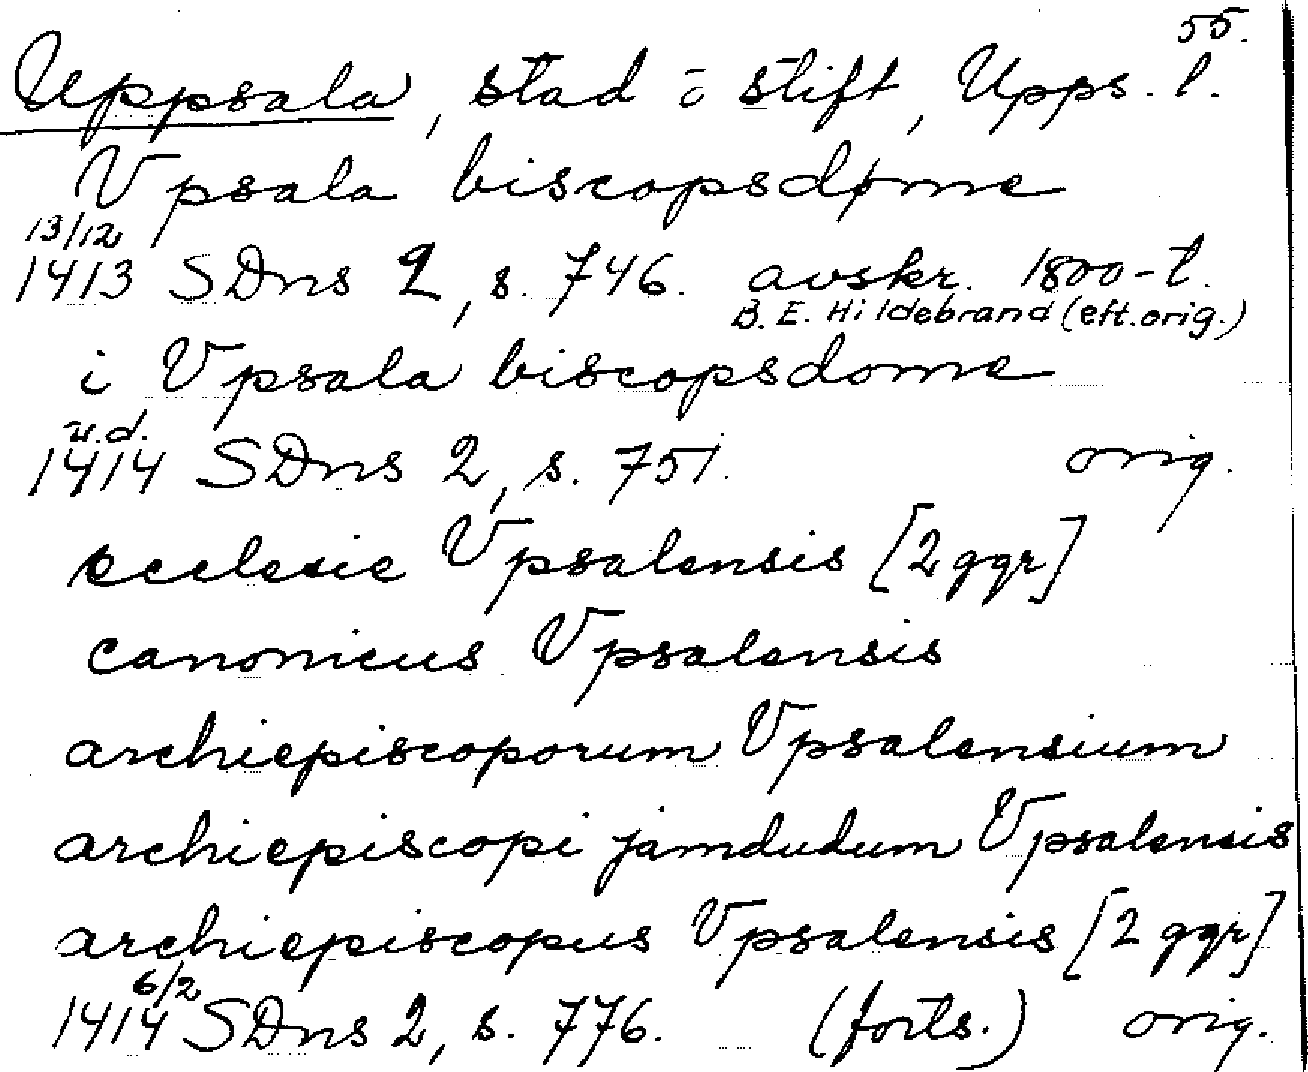 55.
Uppsala, stad o stift, Upps. l.
Vpsala biscopsdøme
13/12
1413 SDns 2, s. 746. avskr. 1800-t.
B. E. Hildebrand (eft. orig.)
i Vpsala biscopsdome
u.d.
1414 SDns 2, s. 751. orig.
ecclesie Vpsalensis [2 ggr]
canonicus Vpsalensis
archiepiscoporum Vpsalensium
archiepiscopi jamdudum Vpsalensis
archiepiscopus Vpsalensis [2 ggr]
6/2
1414 SDns 2, s. 776. (forts.) orig.